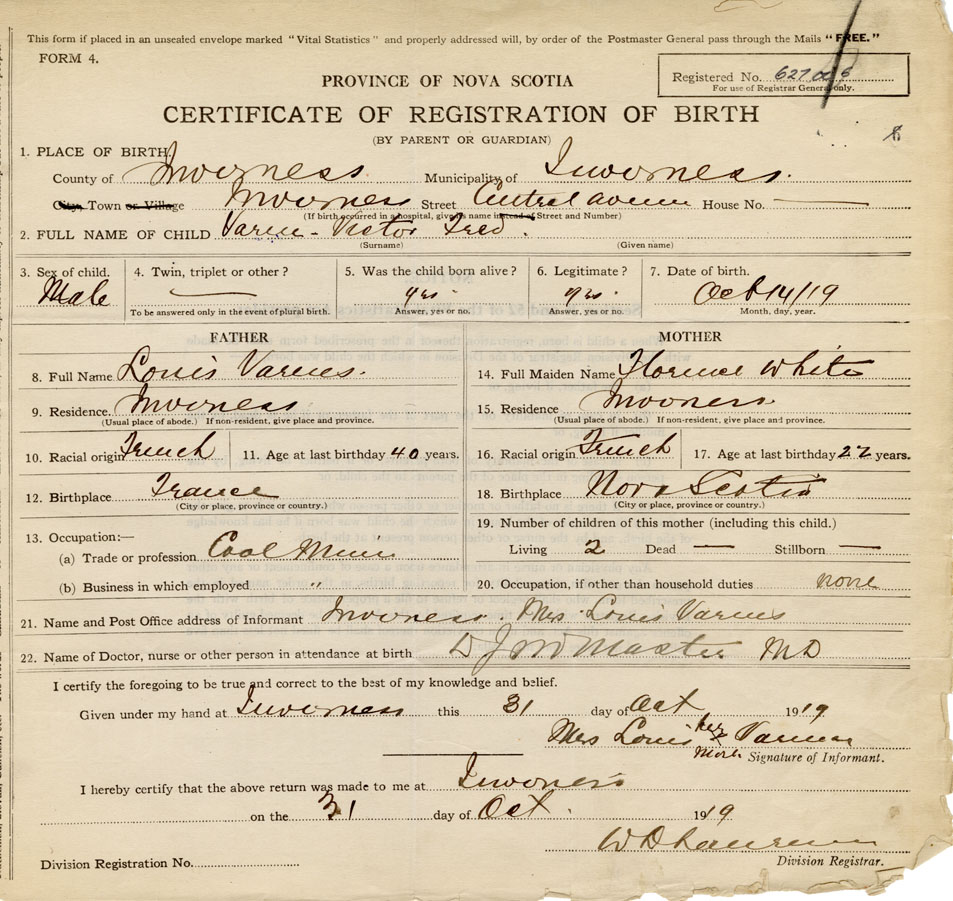 This form if placed in an unsealed envelope marked "Vital Statistics" and properly addressed will, by order of the Postmaster General pass through the Mails "FREE."
FORM 4.
PROVINCE OF NOVA SCOTIA
Registered No.
For use of Registrar General only.
CERTIFICATE OF REGISTRATION OF BIRTH
(BY PARENT OR GUARDIAN)
1. PLACE OF BIRTH
County of Inverness Municipality of Inverness.
City, Town or Village Inverness Street Central avenue House No. —
(If birth occurred in a hospital, give its name instead of Street and Number)
2. FULL NAME OF CHILD Victor Fred.
(Surname) (Given name)
3. Sex of child. 4. Twin, triplet or other? 5. Was the child born alive? 6. Legitimate? 7. Date of birth.
Male — yes. yes. Oct 14/19
To be answered only in the event of plural birth. Answer, yes or no. Answer, yes or no. Month, day, year.
FATHER MOTHER
8. Full Name Louis Varnes. 14. Full Maiden Name Florence White
9. Residence. Inverness 15. Residence Inverness
(Usual place of abode.) If non-resident, give place and province. (Usual place of abode.) If non-resident, give place and province.
10. Racial origin French 11. Age at last birthday 40 years. 16. Racial origin French 17. Age at last birthday 22 years.
12. Birthplace France 18. Birthplace Nova Scotia
(City or place, province or country.) (City or place, province or country.)
13. Occupation:— 19. Number of children of this mother (including this child.)
(a) Trade or profession Coal Miner Living 2 Dead — Stillborn —
(b) Business in which employed " 20. Occupation, if other than household duties none
21. Name and Post Office address of Informant Inverness. Mrs. Louis Varnes
22. Name of Doctor, nurse or other person in attendance at birth M D
I certify the foregoing to be true and correct to the best of my knowledge and belief.
Given under my hand at Inverness this 31 day of Oct 1919
Mrs Louis her x mark Varnes
Signature of Informant.
I hereby certify that the above return was made to me at Inverness
on the 31 day of Oct. 1919
Division Registration No. Division Registrar.